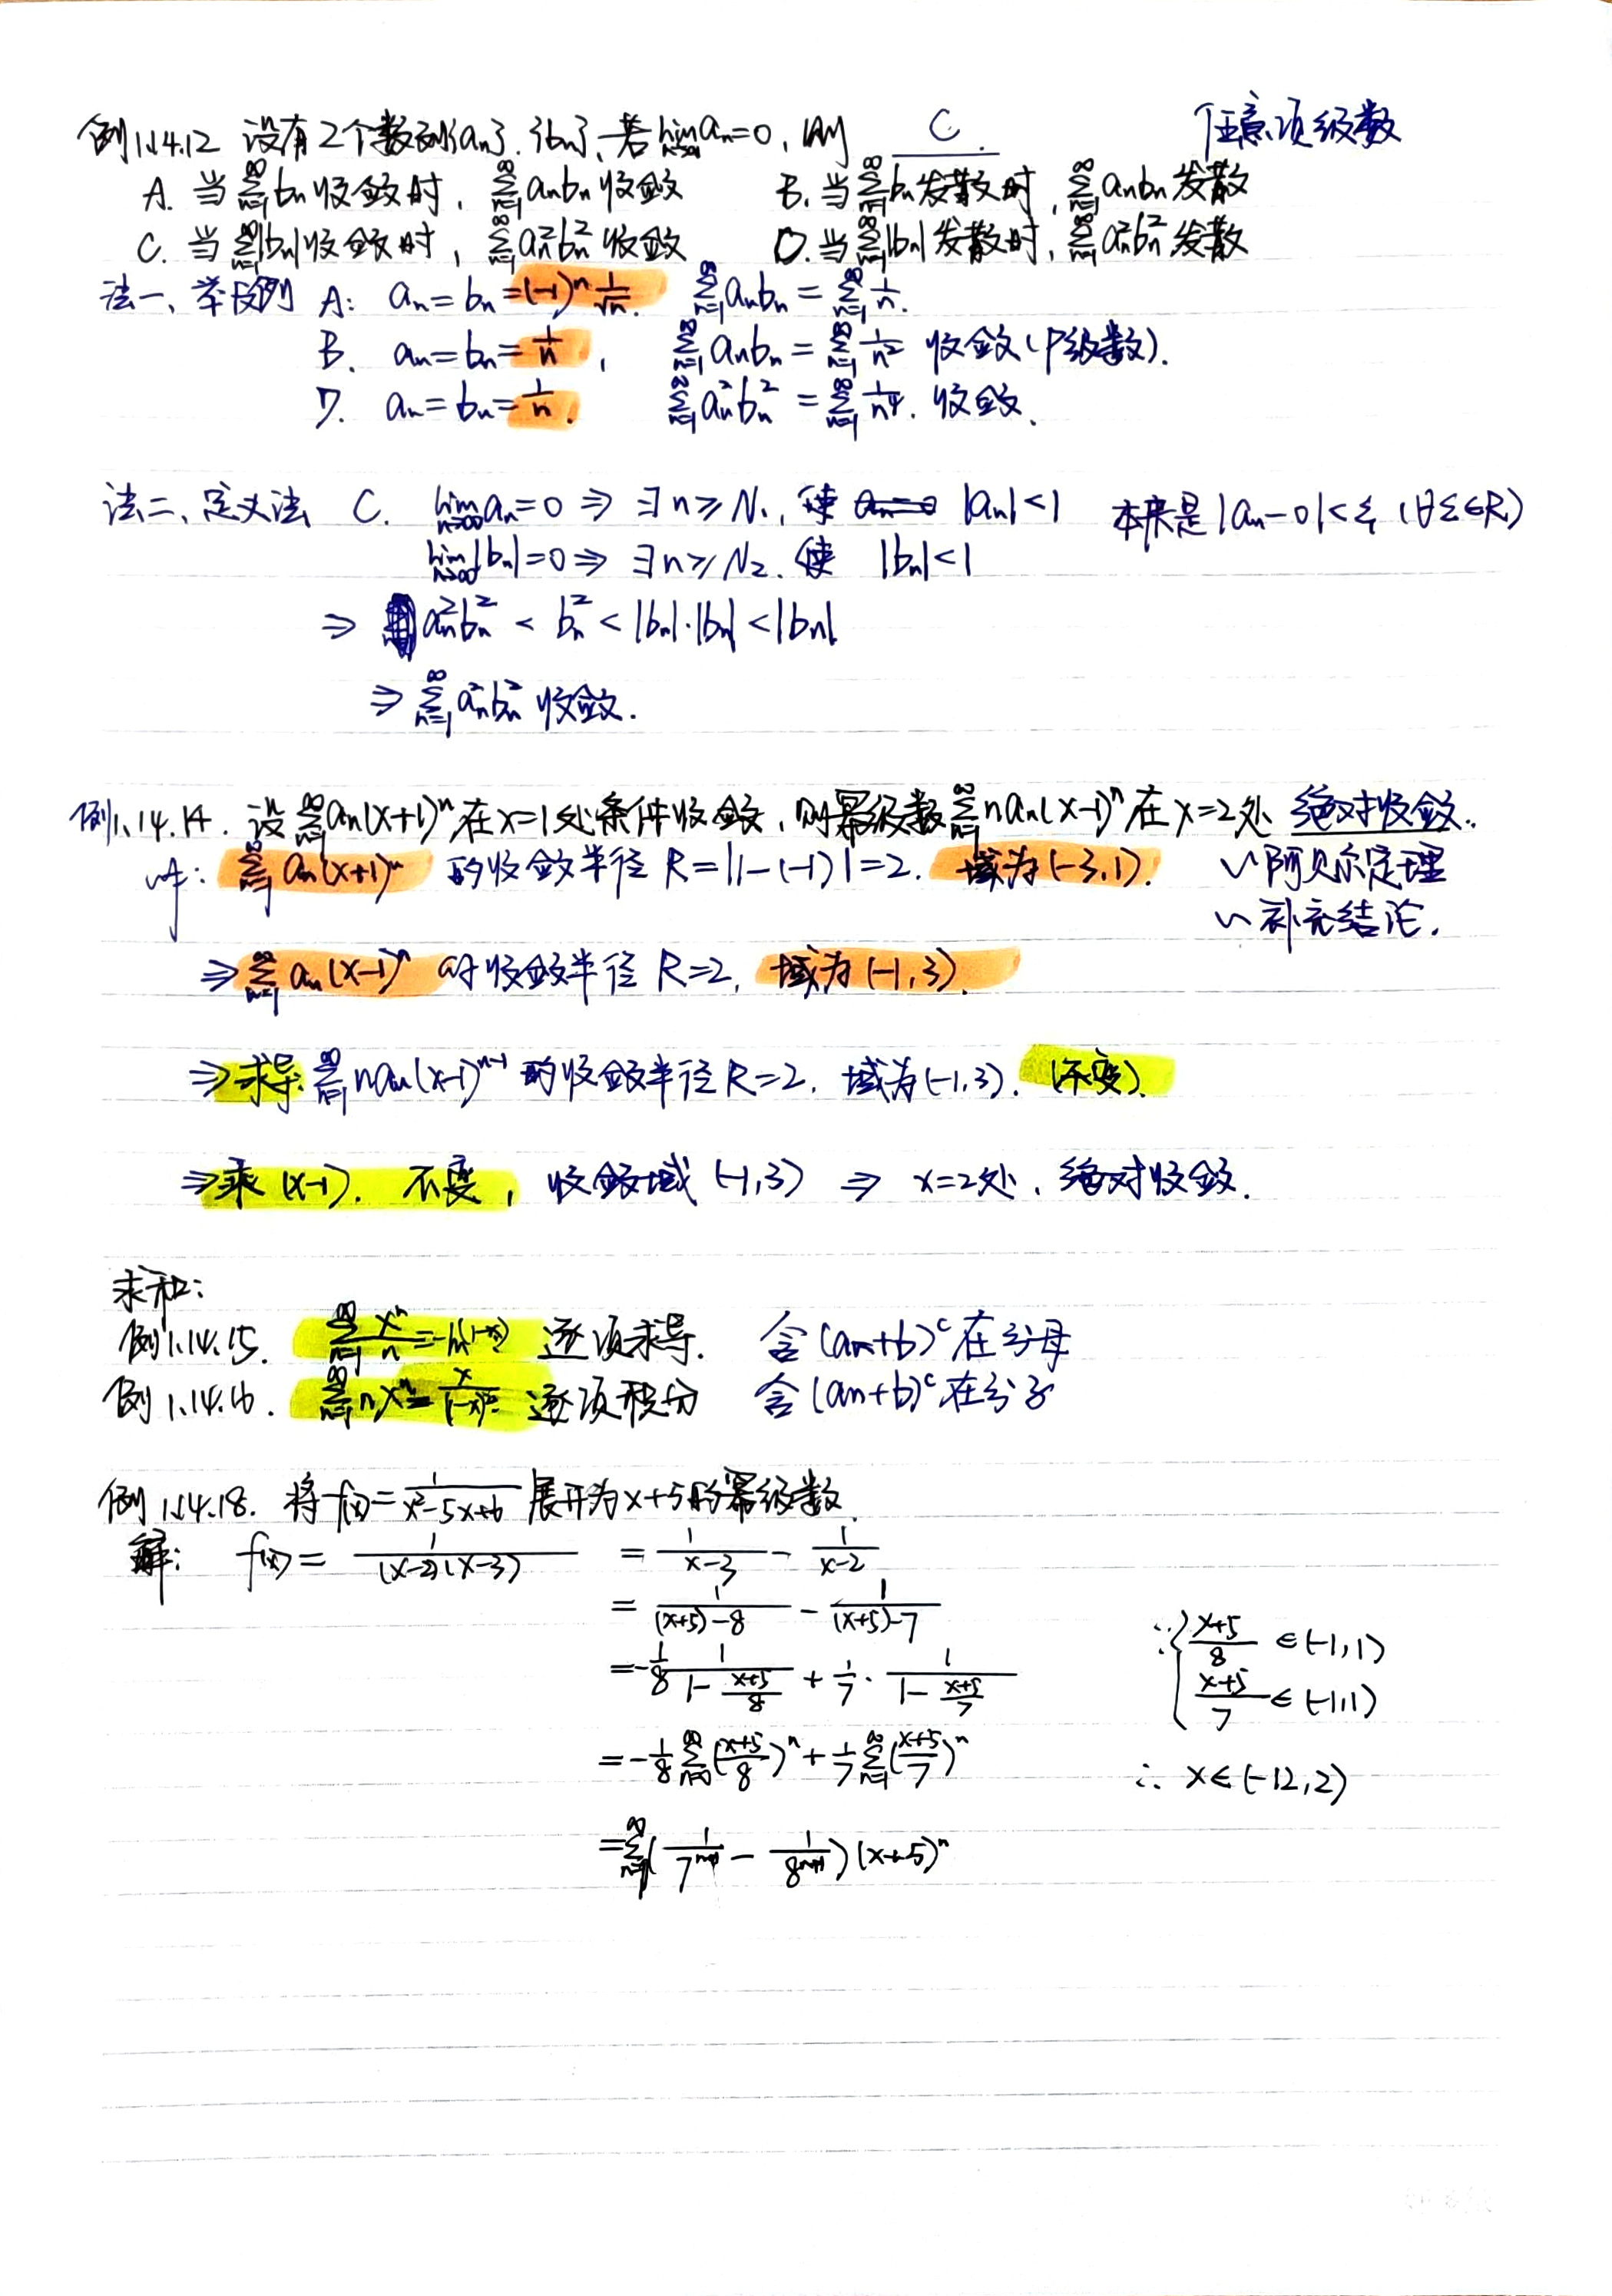 例1.14.12 设有2个数列{an}、{bn}、若lim(n→∞)an=0, 则 C. 任意项级数
A. 当∑(n=1,∞)bn收敛时, ∑(n=1,∞)anbn收敛 B. 当∑(n=1,∞)bn发散时, ∑(n=1,∞)anbn发散
C. 当∑(n=1,∞)|bn|收敛时, ∑(n=1,∞)an²bn²收敛 D. 当∑(n=1,∞)|bn|发散时, ∑(n=1,∞)an²bn²发散
法一、举反例 A: an=bn=(-1)ⁿ 1/√n. ∑(n=1,∞)anbn=∑(n=1,∞)1/n.
B. an=bn=1/n, ∑(n=1,∞)anbn=∑(n=1,∞)1/n² 收敛(P级数).
D. an=bn=1/n. ∑(n=1,∞)an²bn²=∑(n=1,∞)1/n⁴. 收敛.
法二、定义法 C. lim(n→∞)an=0 ⇒ ∃n≥N₁, 使 |an|<1 本来是|an-0|<ε (∀ε∈R)
lim(n→∞)|bn|=0 ⇒ ∃n≥N₂. 使 |bn|<1
⇒ an²bn² < bn² < |bn|·|bn| < |bn|
⇒ ∑(n=1,∞)an²bn² 收敛.
例1.14.14. 设∑(n=1,∞)an(x+1)ⁿ在x=1处条件收敛, 则幂级数∑(n=1,∞)nan(x-1)ⁿ在x=2处 绝对收敛.
∑(n=1,∞)an(x+1)ⁿ 的收敛半径 R=|1-(-1)|=2. 域为(-3,1). 阿贝尔定理
补充结论.
⇒∑(n=1,∞)an(x-1)ⁿ 的收敛半径 R=2, 域为(-1,3).
⇒求导: ∑(n=1,∞)nan(x-1)ⁿ⁻¹ 的收敛半径R=2, 域为(-1,3). (不变).
⇒乘(x-1). 不变, 收敛域(-1,3) ⇒ x=2处, 绝对收敛.
求和:
例1.14.15. ∑(n=1,∞)xⁿ/n=-ln(1-x) 逐项求导. 含(an+b)ᶜ在分母
例1.14.16. ∑(n=1,∞)nxⁿ=x/(1-x)² 逐项积分 含(an+b)ᶜ在分子
例1.14.18. 将f(x)=1/(x²-5x+6)展开为x+5的幂级数.
解: f(x)=1/((x-2)(x-3)) =1/(x-3)-1/(x-2)
=1/((x+5)-8)-1/((x+5)-7)
=-1/8 1/(1-(x+5)/8)+1/7·1/(1-(x+5)/7) ∵{(x+5)/8∈(-1,1)
(x+5)/7∈(-1,1)
=-1/8∑(n=0,∞)((x+5)/8)ⁿ+1/7∑(n=1,∞)((x+5)/7)ⁿ ∴ x∈(-12,2)
=∑(1/7ⁿ⁺¹-1/8ⁿ⁺¹)(x+5)ⁿ